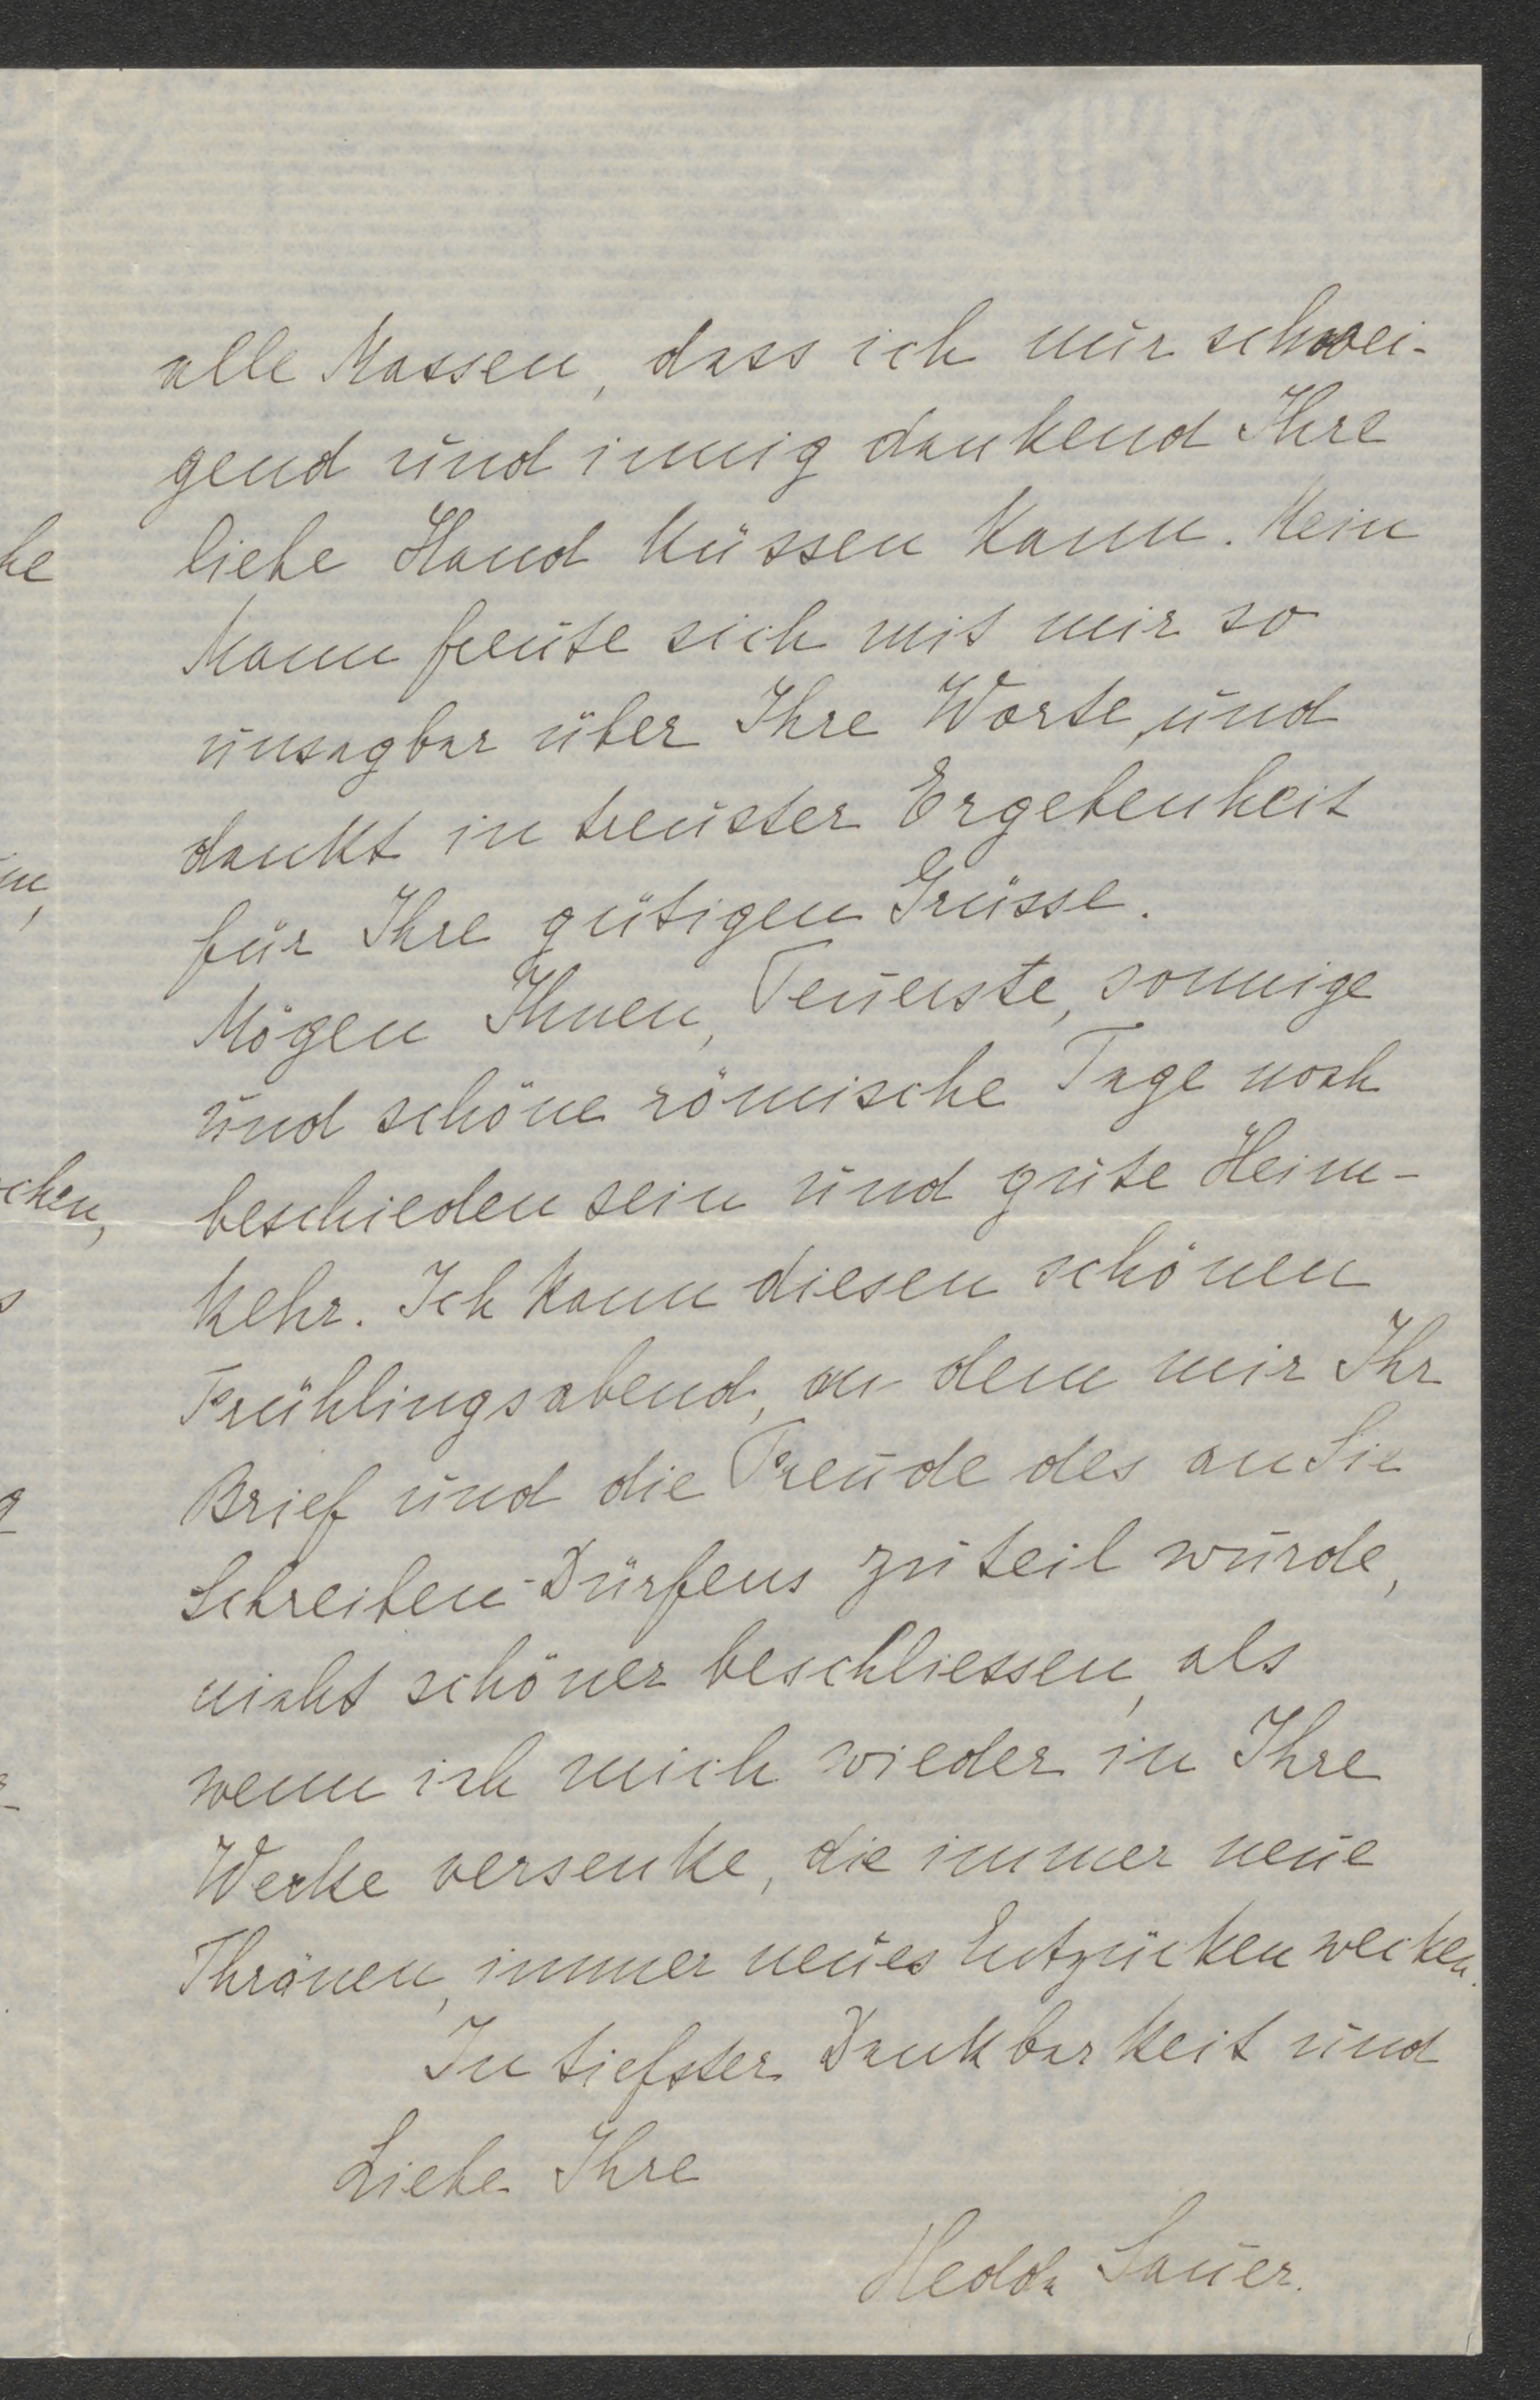 alle Massen, dass ich nur schwei-
gend und innig dankend Ihre
liebe Hand küssen kann. Mein
Mann freute sich mit mir so
unsagbar über Ihre Worte, und
dankt in treuster Ergebenheit
für Ihre gütigen Grüsse.
Mögen Ihnen, Teuerste, sonnige
und schöne römische Tage noch
beschieden sein und gute Heim-
kehr. Ich kann diesen schönen
Frühlingsabend, an dem mir Ihr
Brief und die Freude des an Sie
Schreiben-Dürfens zuteil wurde,
nicht schöner beschliessen, als
wenn ich mich wieder in Ihre
Werke versenke, die immer neue
Thränen, immer neues Entzücken wecken.
In tiefster Dankbarkeit und
Liebe Ihre
Hedda Sauer.